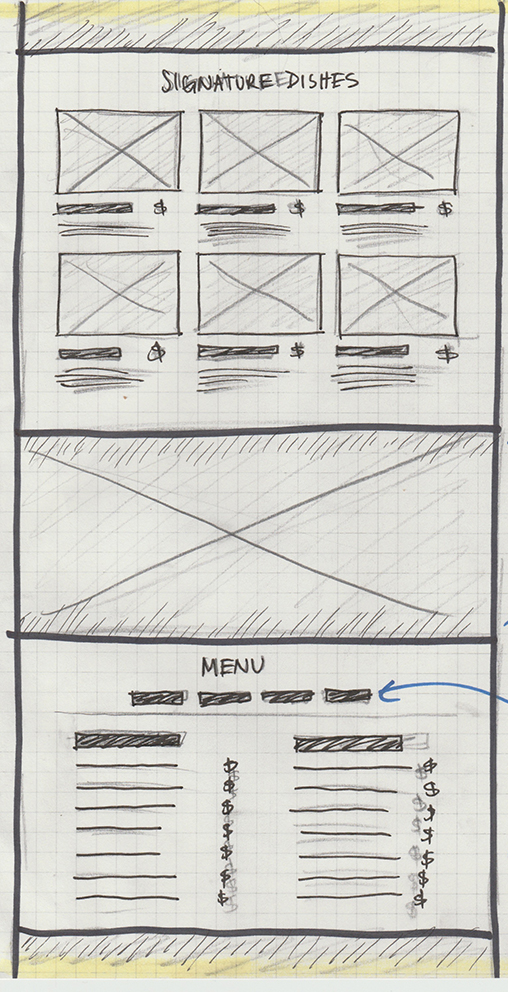 SIGNATURE DISHES
$ $ $
$ $ $
MENU
$ $
$ $
$ $
$ $
$ $
$ $
$ $